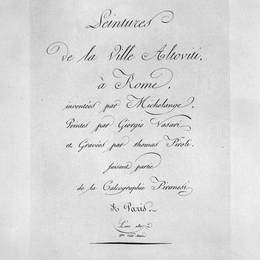 Peintures
de la Ville Altoviti,
à Rome,
inventées par Michelange,
Peintes par Giorgio Vasari
et Gravées par thomas Piroli.
faisant partie
de la Calcographie Piranesi
A Paris.